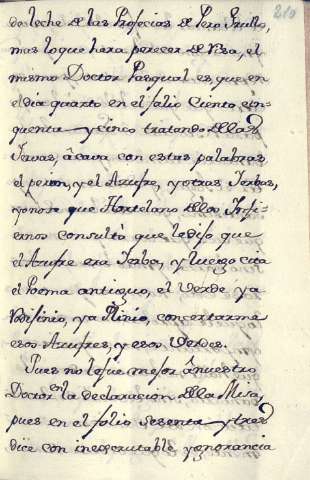 210
do leche de las Profecias de Pero Grullo,
mas lo que hara perecer de risa, el
mismo Doctor Pasqual es que en
el dia quarto en el folio Ciento cin-
quenta y cinco tratando de las
Yervas, acava con estas palabras
el peron, y el Azufre, y otras Yerbas,
que Hortelano de los Infi-
ernos consultó que le dijo que
el Azufre era Yerba, y luego cita
el Poema antiguo, el Verde ya
ya Plinio, concertarme
esos Azufres, y esos Verdes.
Pues no lo fue mejor á nuestro
Doctor en la declaracion de la Misa,
pues en el folio sesenta y tres
dice con inexcrutable ygnorancia